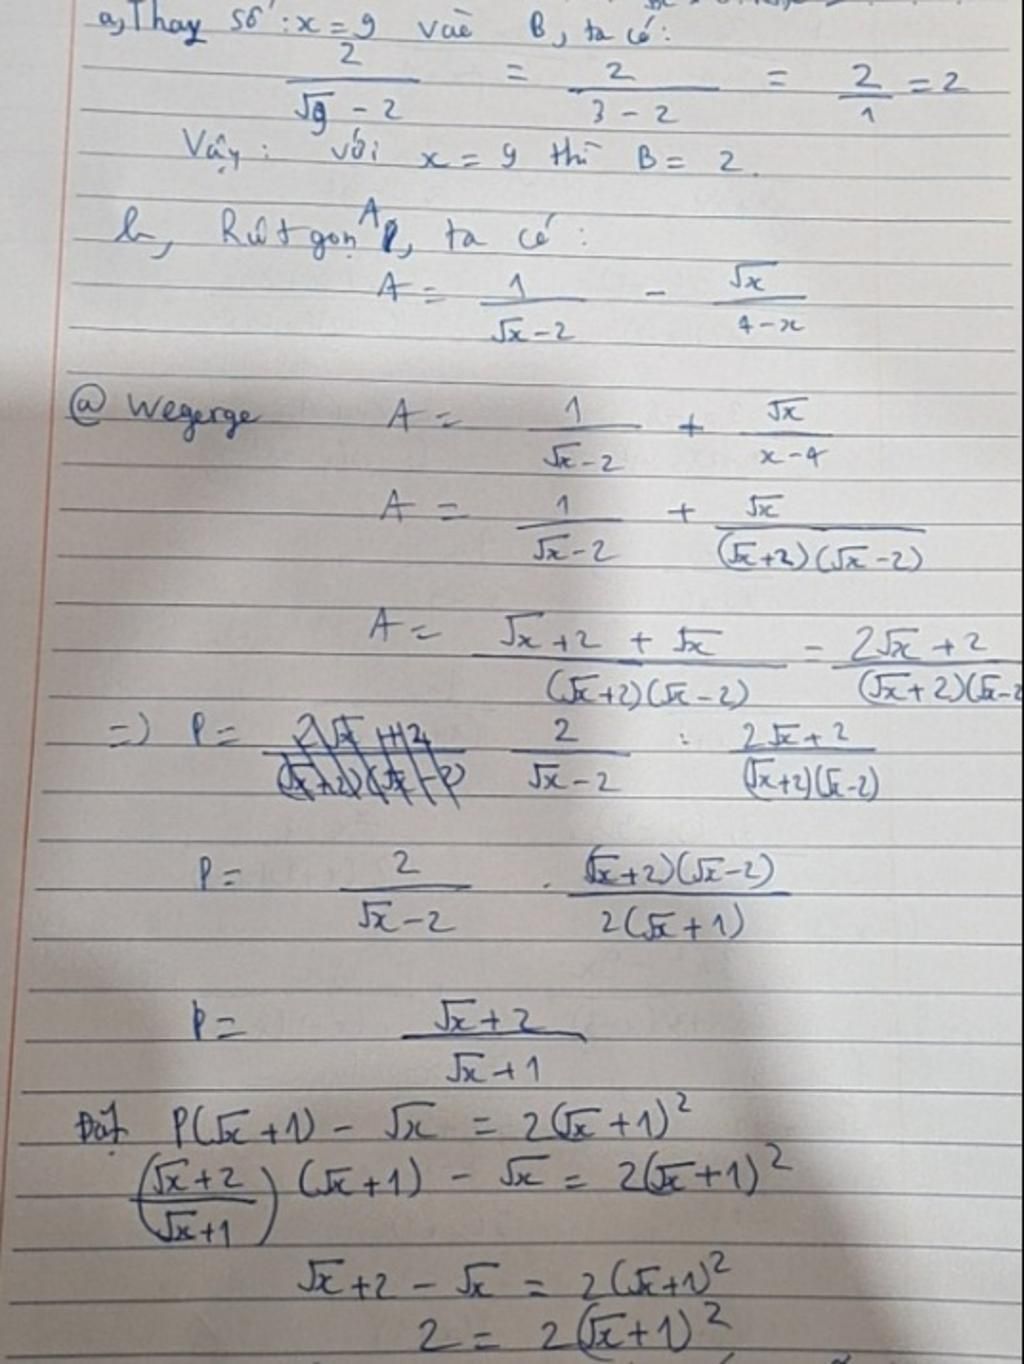 a, Thay số : x = 9 vào B, ta có :
2/(√9 - 2) = 2/(3 - 2) = 2/1 = 2
Vậy : với x = 9 thì B = 2.
b, Rút gọn A, ta có :
A = 1/(√x - 2) - √x/(4 - x)
@ wegerge A = 1/(√x - 2) + √x/(x - 4)
A = 1/(√x - 2) + √x/((√x + 2)(√x - 2))
A = (√x + 2 + √x)/((√x + 2)(√x - 2)) = (2√x + 2)/((√x + 2)(√x - 2
=> P = 2/(√x - 2) : (2√x + 2)/((√x + 2)(√x - 2))
P = 2/(√x - 2) . ((√x + 2)(√x - 2))/(2(√x + 1))
P = (√x + 2)/(√x + 1)
Đặt P(√x + 1) - √x = 2(√x + 1)²
((√x + 2)/(√x + 1)) (√x + 1) - √x = 2(√x + 1)²
√x + 2 - √x = 2(√x + 1)²
2 = 2(√x + 1)²